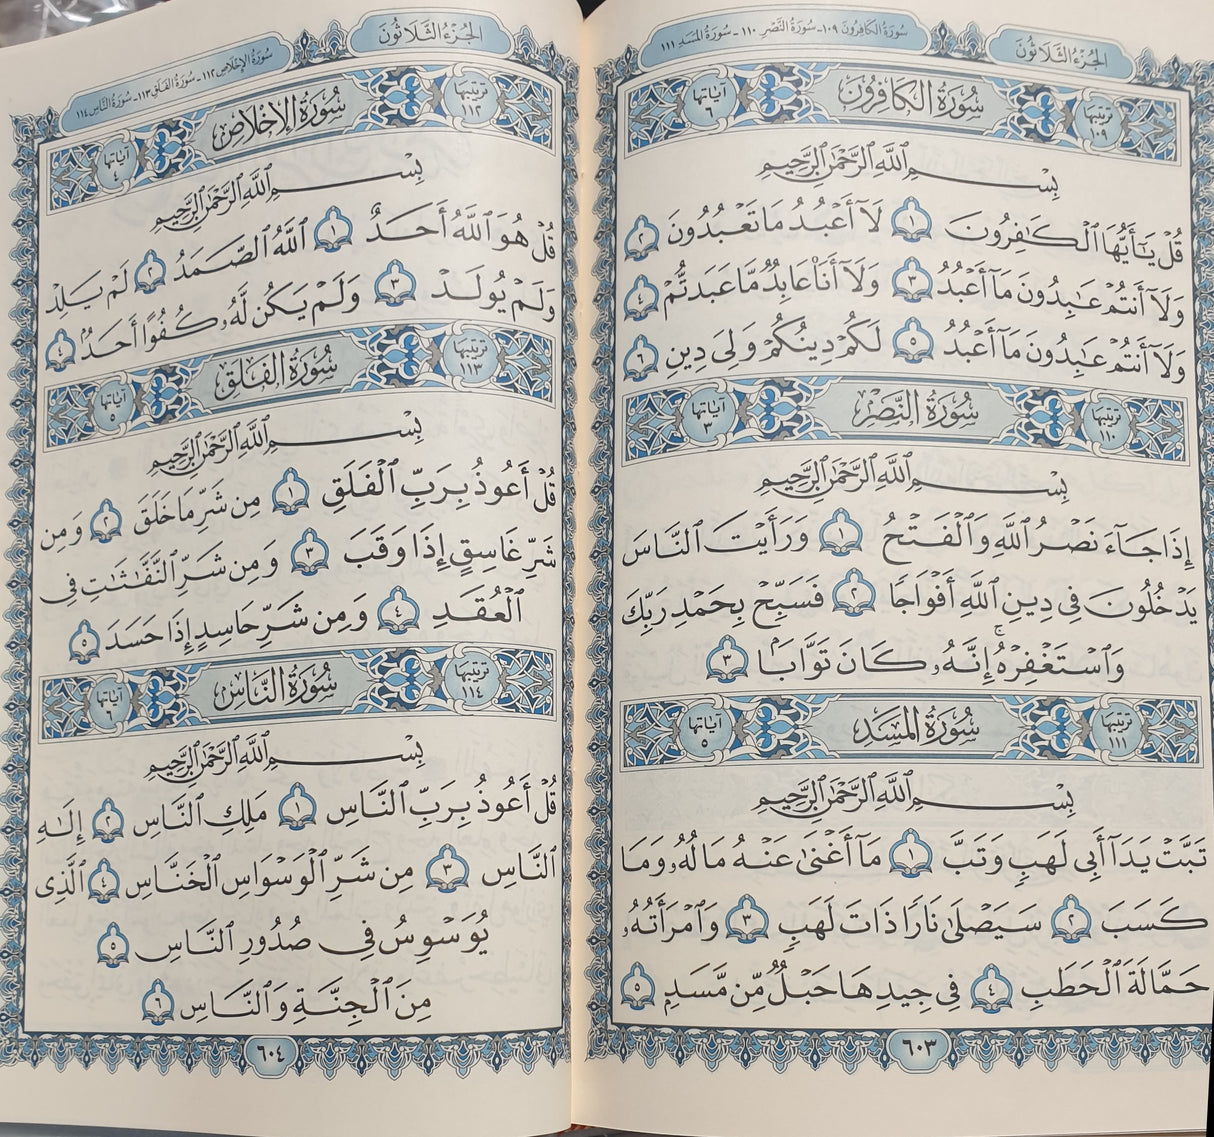 الجُزْءُ الثَّلَاثُونَ
سُورَةُ الكَافِرُونَ ١٠٩ - سُورَةُ النَّصْرِ ١١٠ - سُورَةُ المَسَدِ ١١١
ترتيبها ١٠٩ سُورَةُ الكَافِرُونَ آياتها ٦
بِسْمِ ٱللَّهِ ٱلرَّحْمَٰنِ ٱلرَّحِيمِ
قُلْ يَٰٓأَيُّهَا ٱلْكَٰفِرُونَ ١ لَآ أَعْبُدُ مَا تَعْبُدُونَ ٢
وَلَآ أَنتُمْ عَٰبِدُونَ مَآ أَعْبُدُ ٣ وَلَآ أَنَا۠ عَابِدٌ مَّا عَبَدتُّمْ ٤
وَلَآ أَنتُمْ عَٰبِدُونَ مَآ أَعْبُدُ ٥ لَكُمْ دِينُكُمْ وَلِىَ دِينِ ٦
ترتيبها ١١٠ سُورَةُ النَّصْرِ آياتها ٣
بِسْمِ ٱللَّهِ ٱلرَّحْمَٰنِ ٱلرَّحِيمِ
إِذَا جَآءَ نَصْرُ ٱللَّهِ وَٱلْفَتْحُ ١ وَرَأَيْتَ ٱلنَّاسَ
يَدْخُلُونَ فِى دِينِ ٱللَّهِ أَفْوَاجًا ٢ فَسَبِّحْ بِحَمْدِ رَبِّكَ
وَٱسْتَغْفِرْهُ ۚ إِنَّهُۥ كَانَ تَوَّابَۢا ٣
ترتيبها ١١١ سُورَةُ المَسَدِ آياتها ٥
بِسْمِ ٱللَّهِ ٱلرَّحْمَٰنِ ٱلرَّحِيمِ
تَبَّتْ يَدَآ أَبِى لَهَبٍ وَتَبَّ ١ مَآ أَغْنَىٰ عَنْهُ مَالُهُۥ وَمَا
كَسَبَ ٢ سَيَصْلَىٰ نَارًا ذَاتَ لَهَبٍ ٣ وَٱمْرَأَتُهُۥ
حَمَّالَةَ ٱلْحَطَبِ ٤ فِى جِيدِهَا حَبْلٌ مِّن مَّسَدٍۭ ٥
٦٠٣
الجُزْءُ الثَّلَاثُونَ
سُورَةُ الإِخْلَاصِ ١١٢ - سُورَةُ الفَلَقِ ١١٣ - سُورَةُ النَّاسِ ١١٤
ترتيبها ١١٢ سُورَةُ الإِخْلَاصِ آياتها ٤
بِسْمِ ٱللَّهِ ٱلرَّحْمَٰنِ ٱلرَّحِيمِ
قُلْ هُوَ ٱللَّهُ أَحَدٌ ١ ٱللَّهُ ٱلصَّمَدُ ٢ لَمْ يَلِدْ
وَلَمْ يُولَدْ ٣ وَلَمْ يَكُن لَّهُۥ كُفُوًا أَحَدٌۢ ٤
ترتيبها ١١٣ سُورَةُ الفَلَقِ آياتها ٥
بِسْمِ ٱللَّهِ ٱلرَّحْمَٰنِ ٱلرَّحِيمِ
قُلْ أَعُوذُ بِرَبِّ ٱلْفَلَقِ ١ مِن شَرِّ مَا خَلَقَ ٢ وَمِن
شَرِّ غَاسِقٍ إِذَا وَقَبَ ٣ وَمِن شَرِّ ٱلنَّفَّٰثَٰتِ فِى
ٱلْعُقَدِ ٤ وَمِن شَرِّ حَاسِدٍ إِذَا حَسَدَ ٥
ترتيبها ١١٤ سُورَةُ النَّاسِ آياتها ٦
بِسْمِ ٱللَّهِ ٱلرَّحْمَٰنِ ٱلرَّحِيمِ
قُلْ أَعُوذُ بِرَبِّ ٱلنَّاسِ ١ مَلِكِ ٱلنَّاسِ ٢ إِلَٰهِ
ٱلنَّاسِ ٣ مِن شَرِّ ٱلْوَسْوَاسِ ٱلْخَنَّاسِ ٤ ٱلَّذِى
يُوَسْوِسُ فِى صُدُورِ ٱلنَّاسِ ٥
مِنَ ٱلْجِنَّةِ وَٱلنَّاسِ ٦
٦٠٤